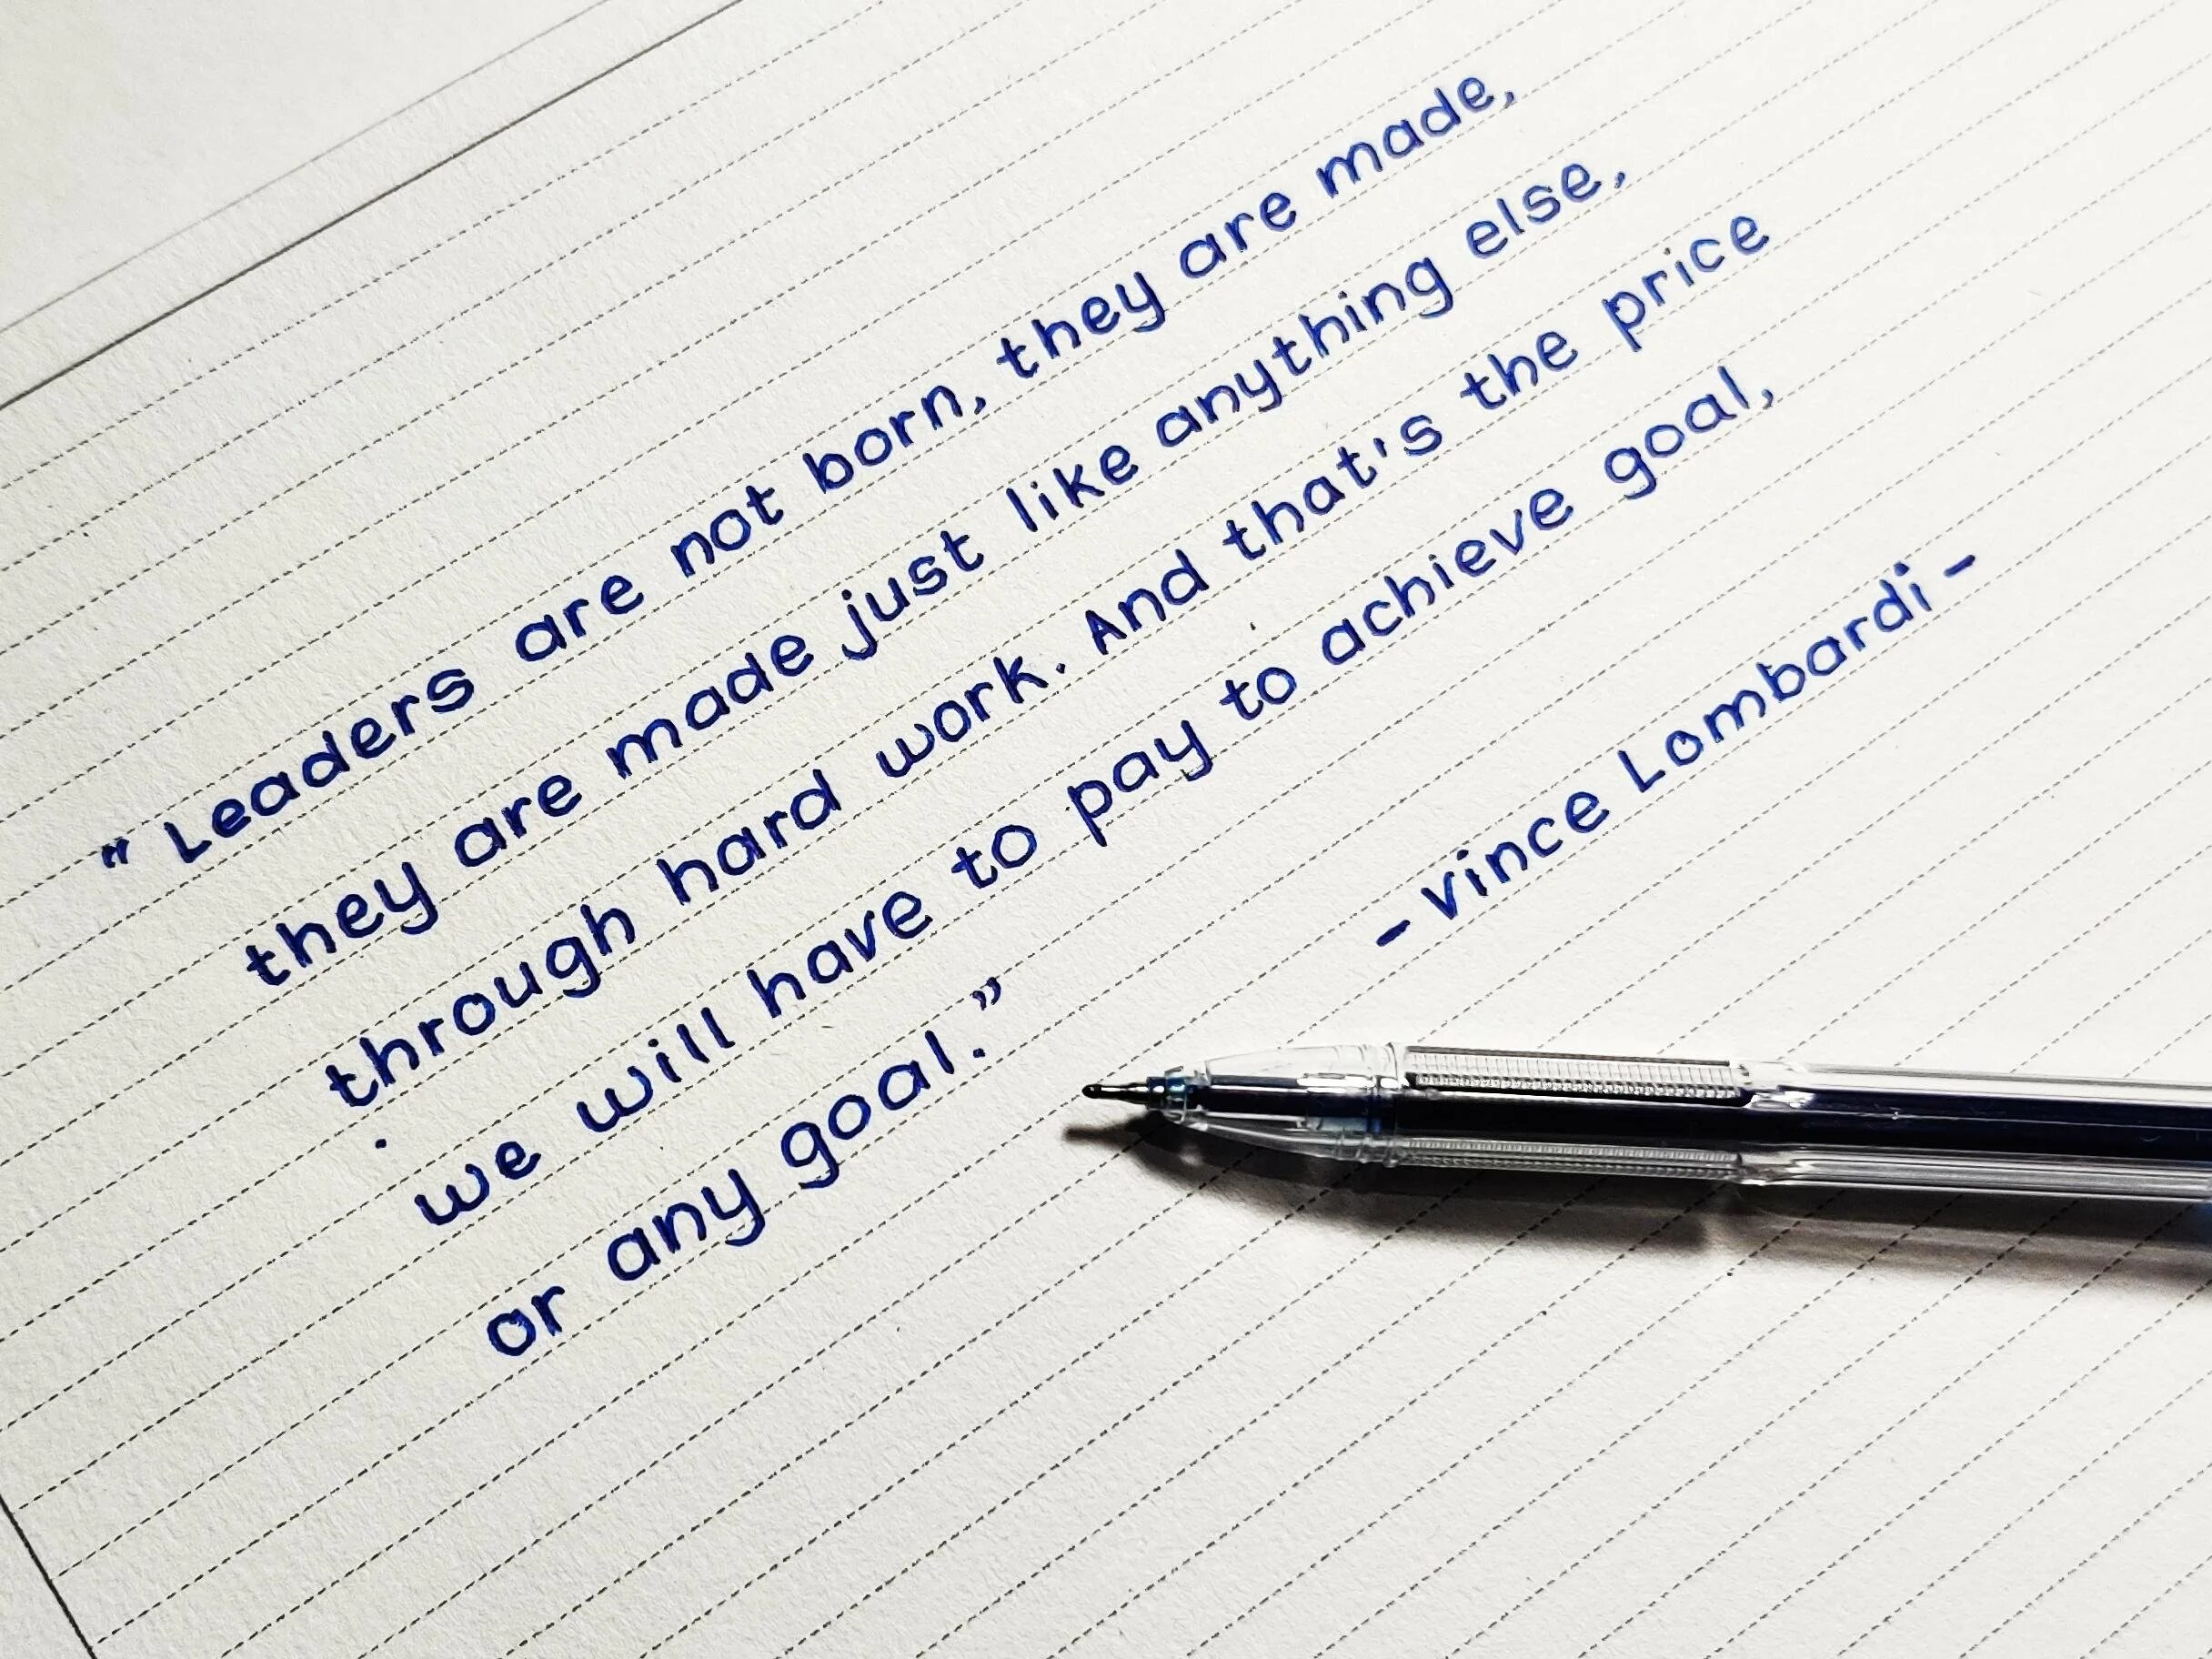 " Leaders are not born, they are made,
they are made just like anything else,
through hard work. And that's the price
we will have to pay to achieve goal,
or any goal."
- Vince Lombardi -